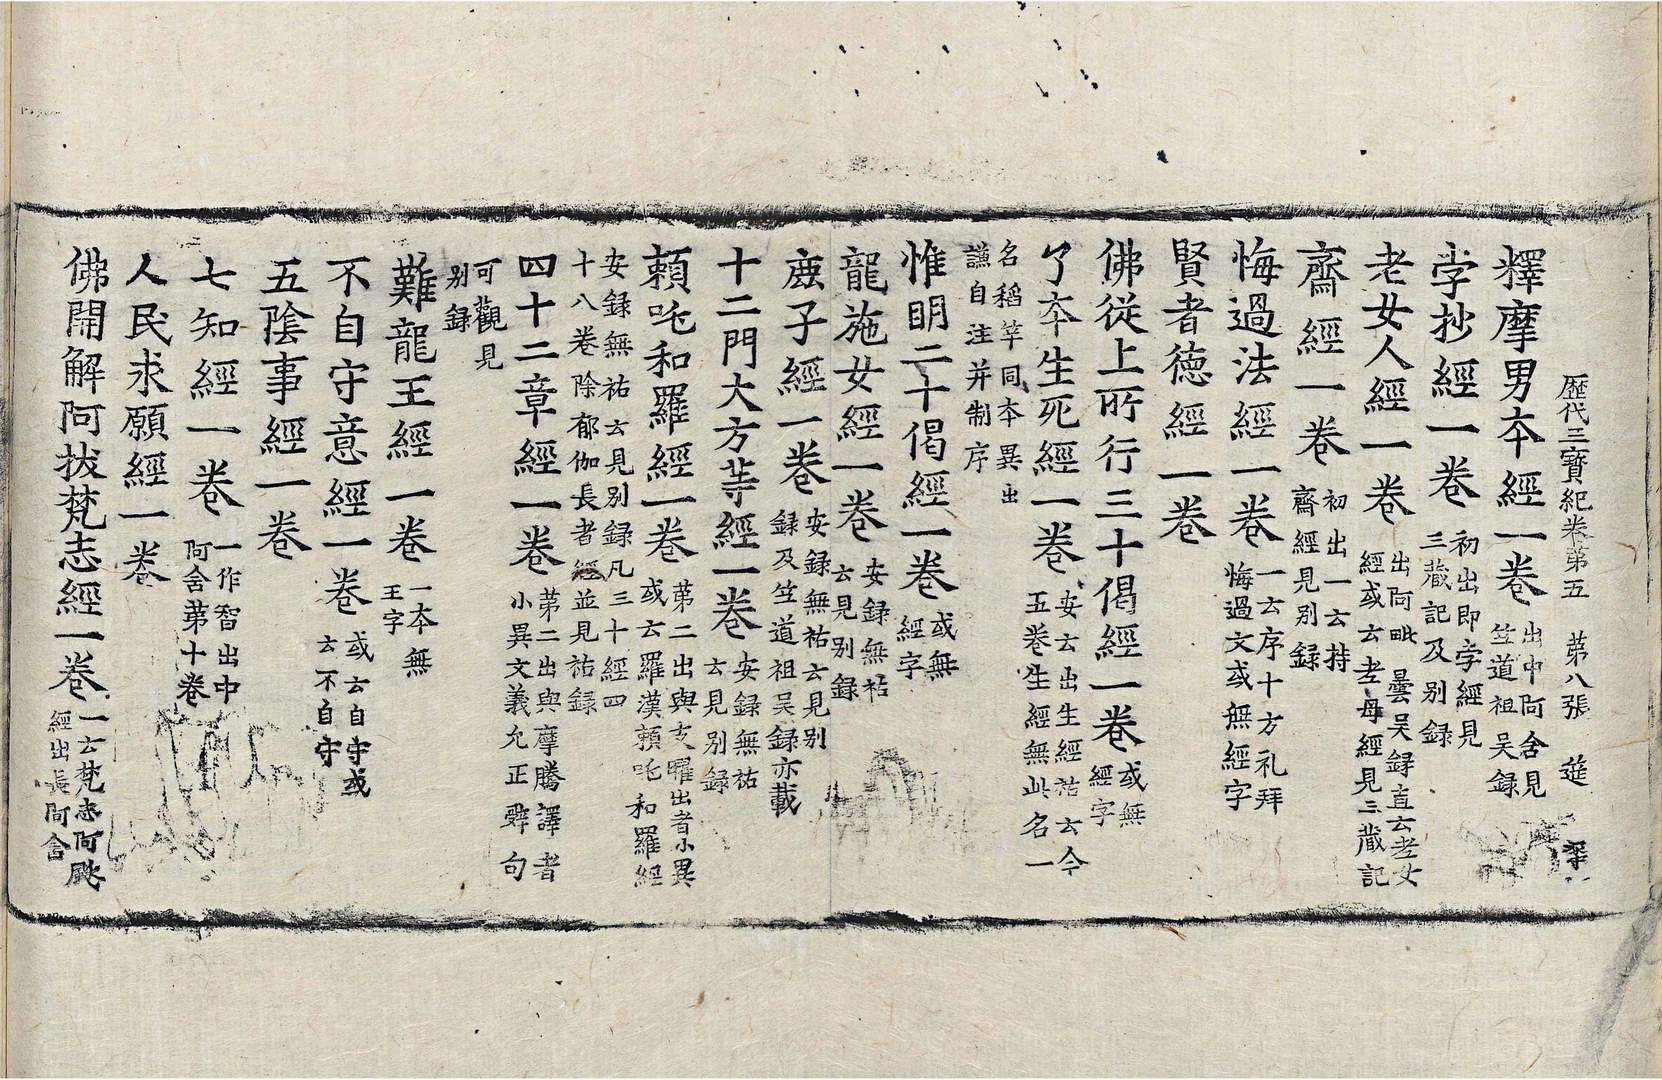 歴代三寳紀卷第五　第八張　筵
釋摩男夲經一卷 出中阿含見竺道祖吴録
孛抄經一卷 初出即孛經見三藏記及别録
老女人經一卷 出阿毗曇吴録直云老女經或云老母經見三藏記
齋經一卷 初出一云持齋經見别録
悔過法經一卷 一云序十方礼拜悔過文或無經字
賢者徳經一卷
佛従上所行三十偈經一卷 或無經字
了夲生死經一卷 安云出生經祐云今五卷生經無此名一
名稻芉同夲異出謙自注并制序
惟明二十偈經一卷 或無經字
龍施女經一卷 安録無祐云見别録
鹿子經一卷 安録無祐云見别録及竺道祖吴録亦載
十二門大方等經一卷 安録無祐云見别録
頼吒和羅經一卷 第二出與支曜出者小異或云羅漢頼吒和羅經
安録無祐云見别録凡三十經四十八卷除郁伽長者經並見祐録
四十二章經一卷 第二出與摩騰譯者小異文義允正辝句
可觀見别録
難龍王經一卷 一夲無王字
不自守意經一卷 或云自守或云不自守
五陰事經一卷
七知經一卷 一作智出中阿含第十卷
人民求願經一卷
佛開解阿拔梵志經一卷 一云梵志阿颰經出長阿含